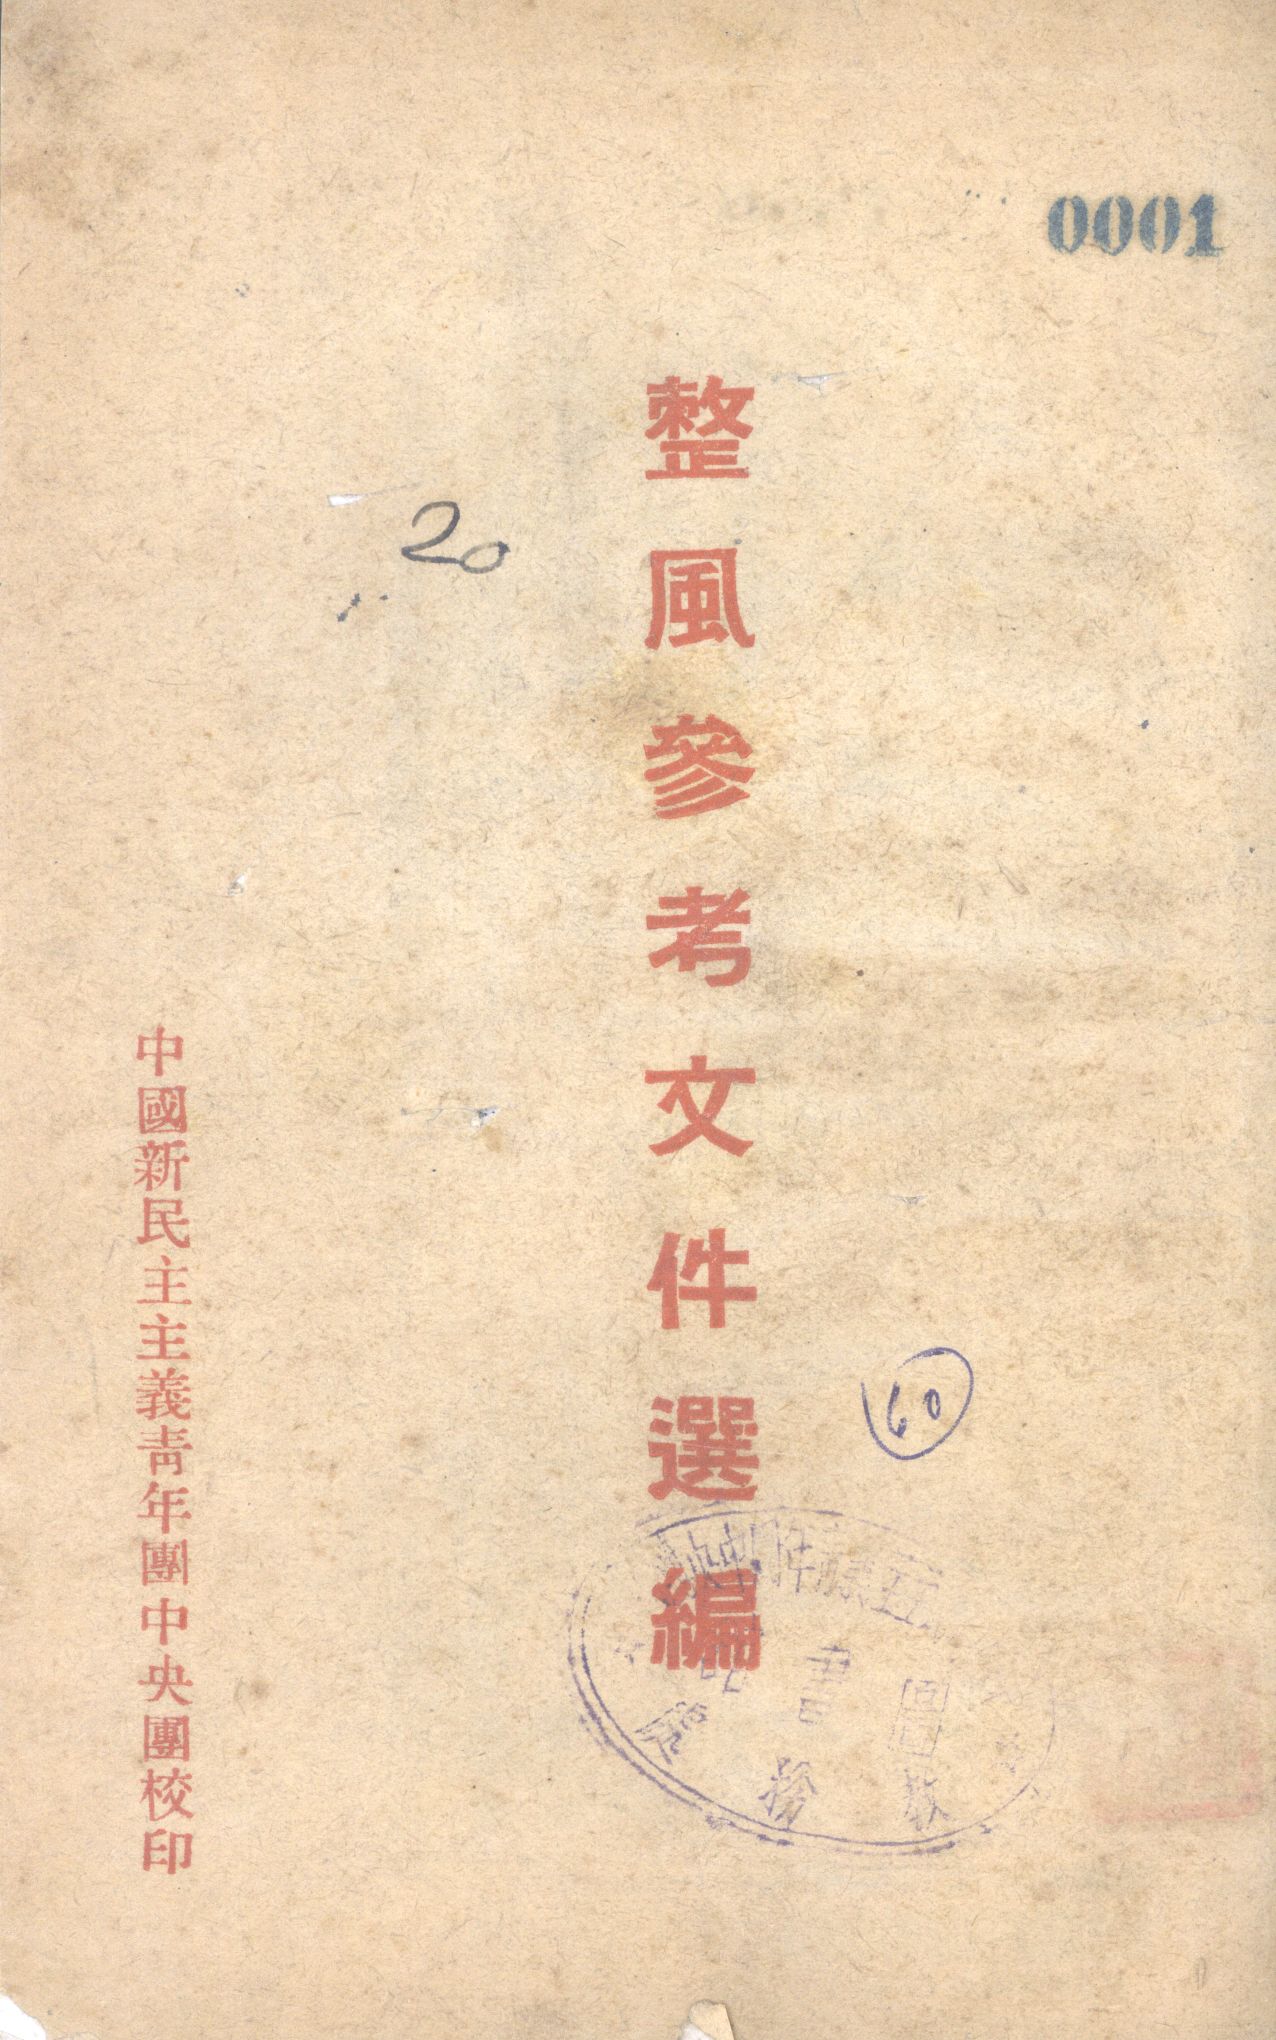 0001
整風參考文件選編
20
60
中國新民主主義靑年團中央團校印
圖書